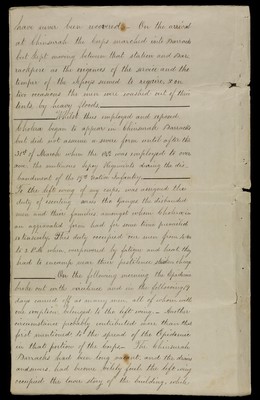 have never been recovered. On the arrival
at Chinsurah the Corps marched into Barracks
but kept moving between that station and Bar-
rackpore as the exigencies of the service and the
temper of the Sepoys seemed to require, & on
two occasions the men were washed out of their
tents by heavy floods.
Whilst thus employed and exposed
Cholera began to appear in Chinsurah Barracks
but did not assume a severe form until after the
31st of March when the was employed to over
awe the mutinous Sepoy Regiments during the dis-
bandment of the 19th Native Infantry.
To the left wing of my corps was assigned the
duty of escorting over the Ganges the disbanded
men and their families amongst whom Cholera in
an aggravated form had for some time prevailed
extensively. This duty occupied our men from 4 a.m.
to 2 P.M. when, overpowered by fatigue and heat, they
had to encamp near their pestilence stricken charge
On the following morning the Epidemic
broke out with virulence and in the following
days carried off as many men, all of whom with
one exception belonged to the left wing. Another
circumstance probably contributed more than the
first mentioned to the spread of the Epidemic
in that portion of the Corps. The Chinsurah
Barracks had been long vacant, and the drains
and sewers had become foul, the left wing
occupied the lower story of the building, while